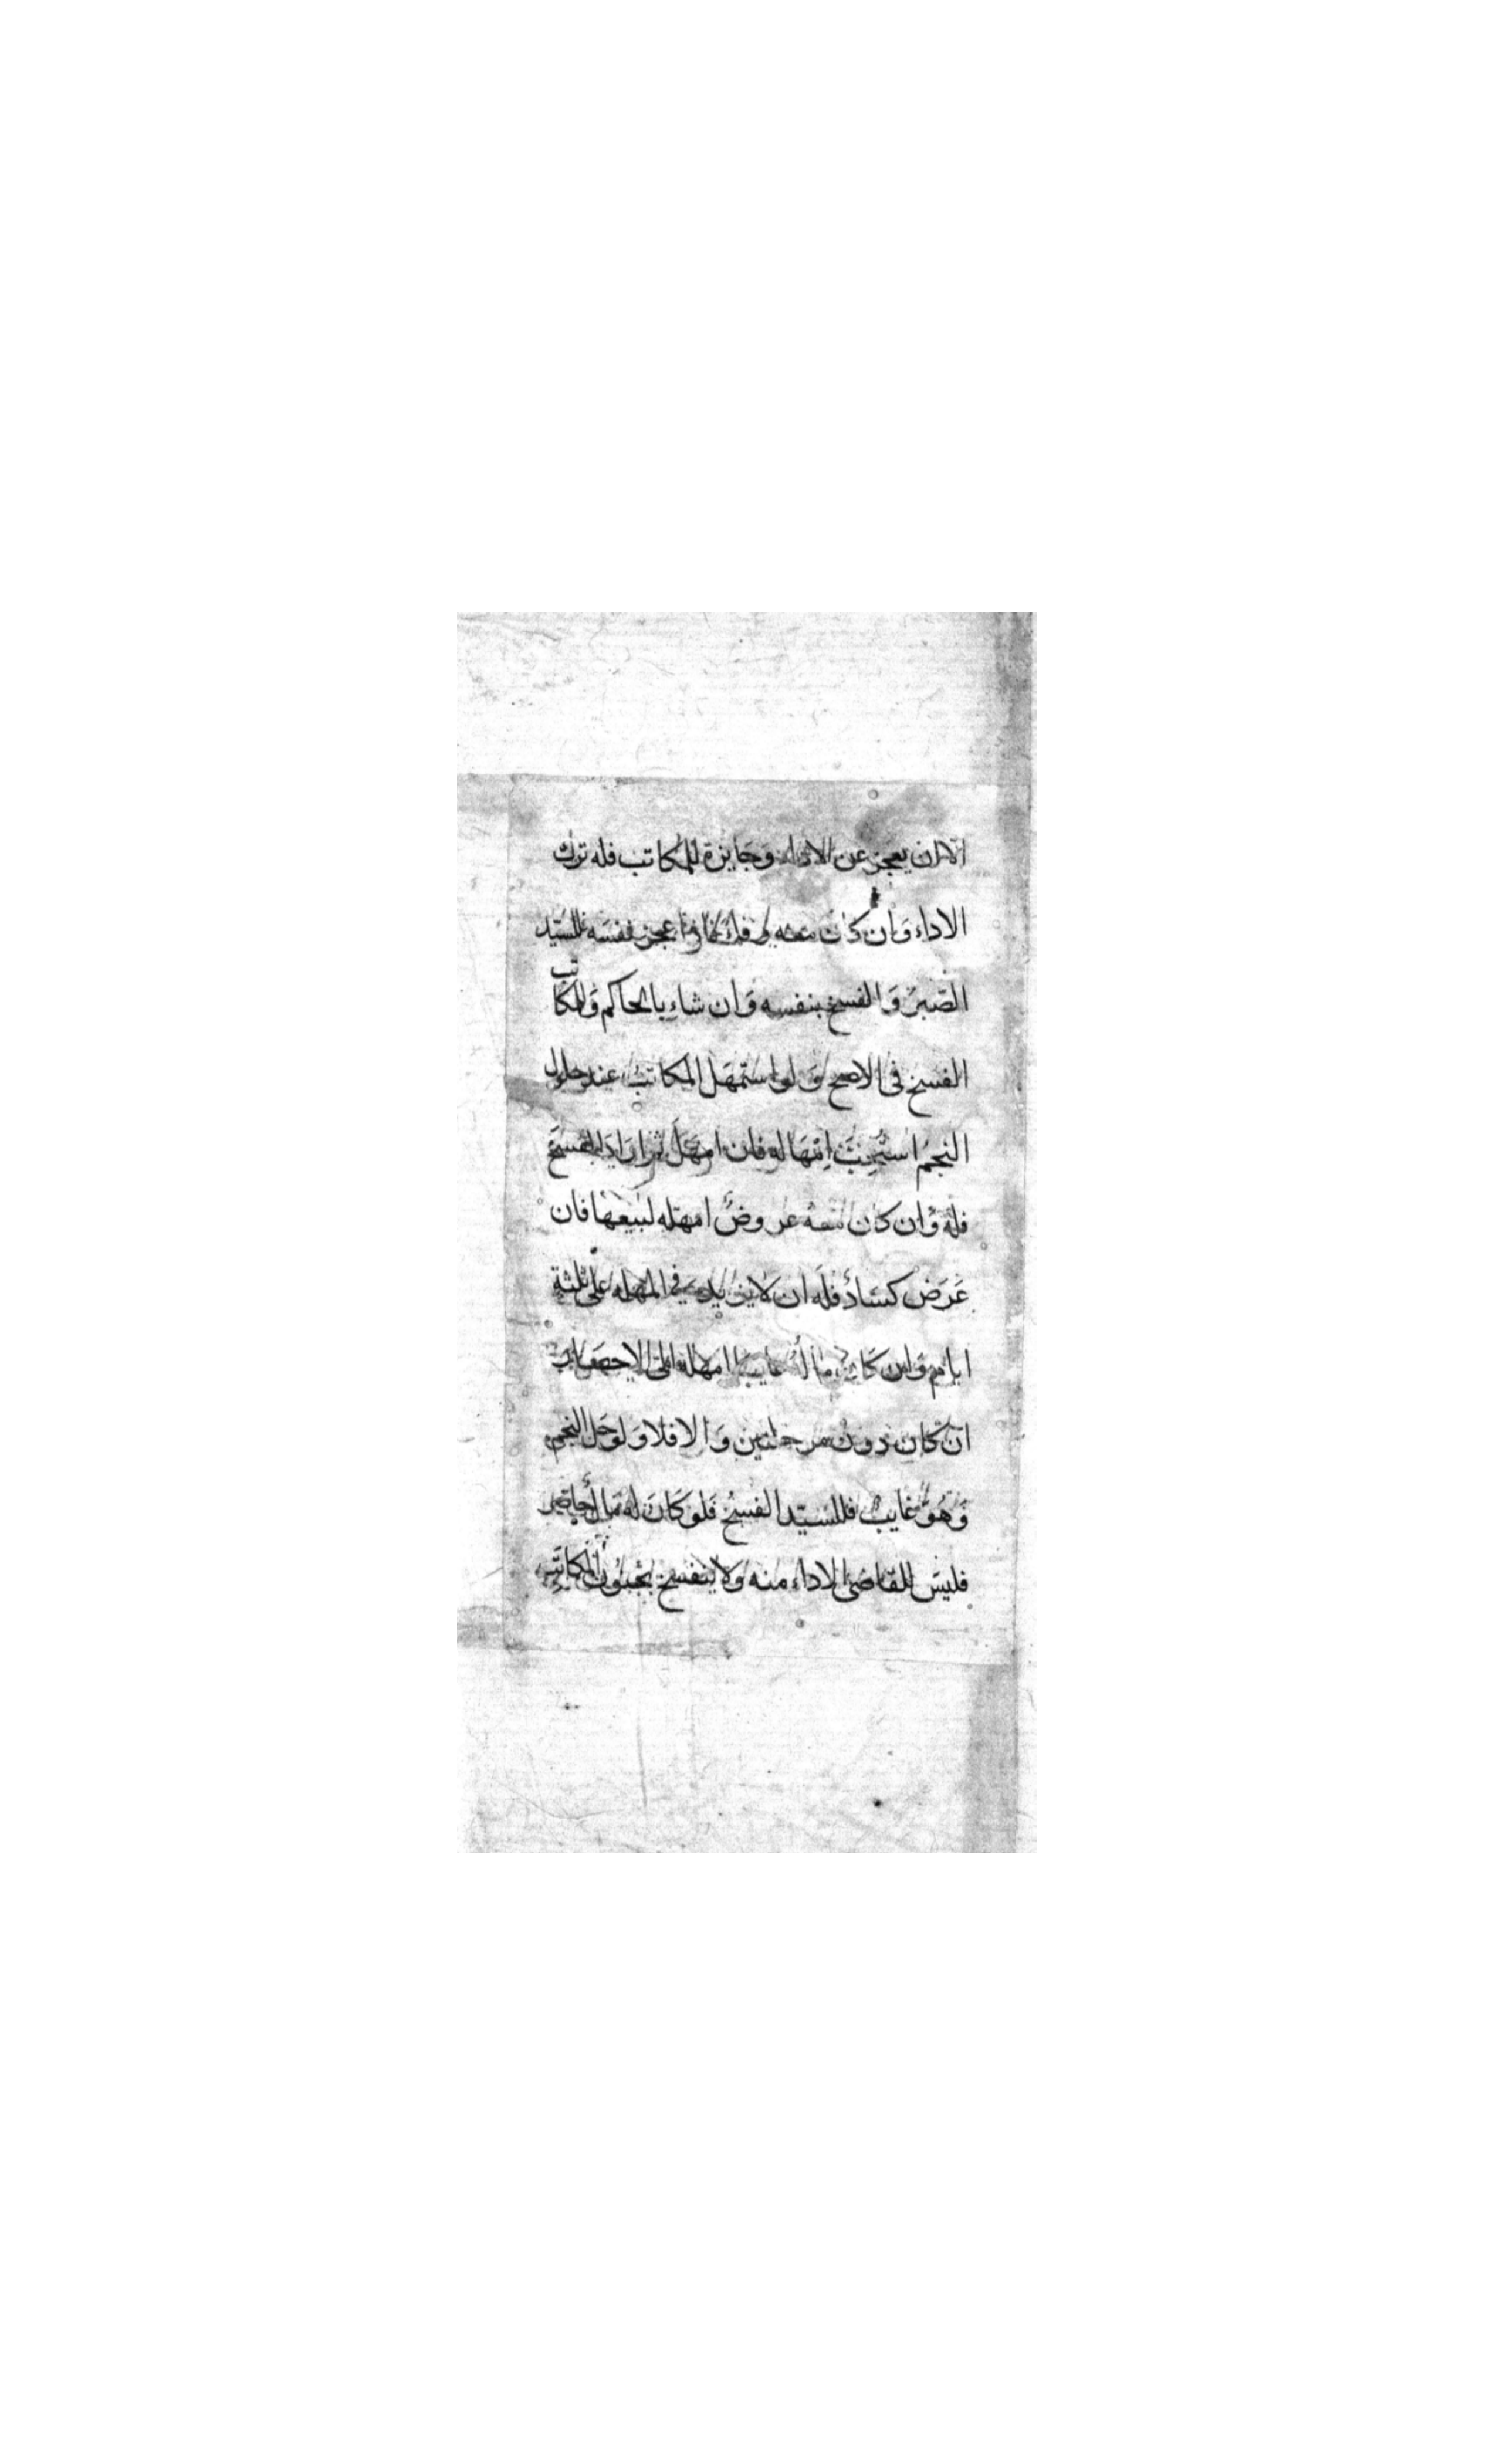 الا ان يعجز عن الاداء وجايزة للمكاتب فله ترك
الاداء وَان كان معه وفاء فاذا عجز نفسه فللسّيد
الصّبرُ وَالفسخ بنفسه وَان شاءِ بالحاكم وَللمكاتب
الفسخ في الاصح وَلو استمهَل المكاتبُ عند حلول
النجمُ استُحِبَّ اِمهَاله فان امهَلَ ثم ارَادَ الفسخَ
فله وَان كان معه عروضٌ امهله لبيعهَا فان
عَرَض كسَادٌ فلَه ان لا يزيد في المهله على ثلثة
ايام وَان كَان مالهُ غايبا امهله الى الاحضار
ان كان دون مرحلتين وَالا فلا وَلو حَل النجم
وَهُو غايبٌ فللسيّد الفسخُ فَلو كَانَ له مَالٌ حاضر
فليسَ للقاضي الاداء منه وَلا ينفسخ بجُنوُن المكاتَبِ